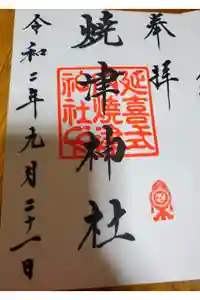 奉拝
延喜式
内燒津
神社
焼津神社
令和二年元月二十一日